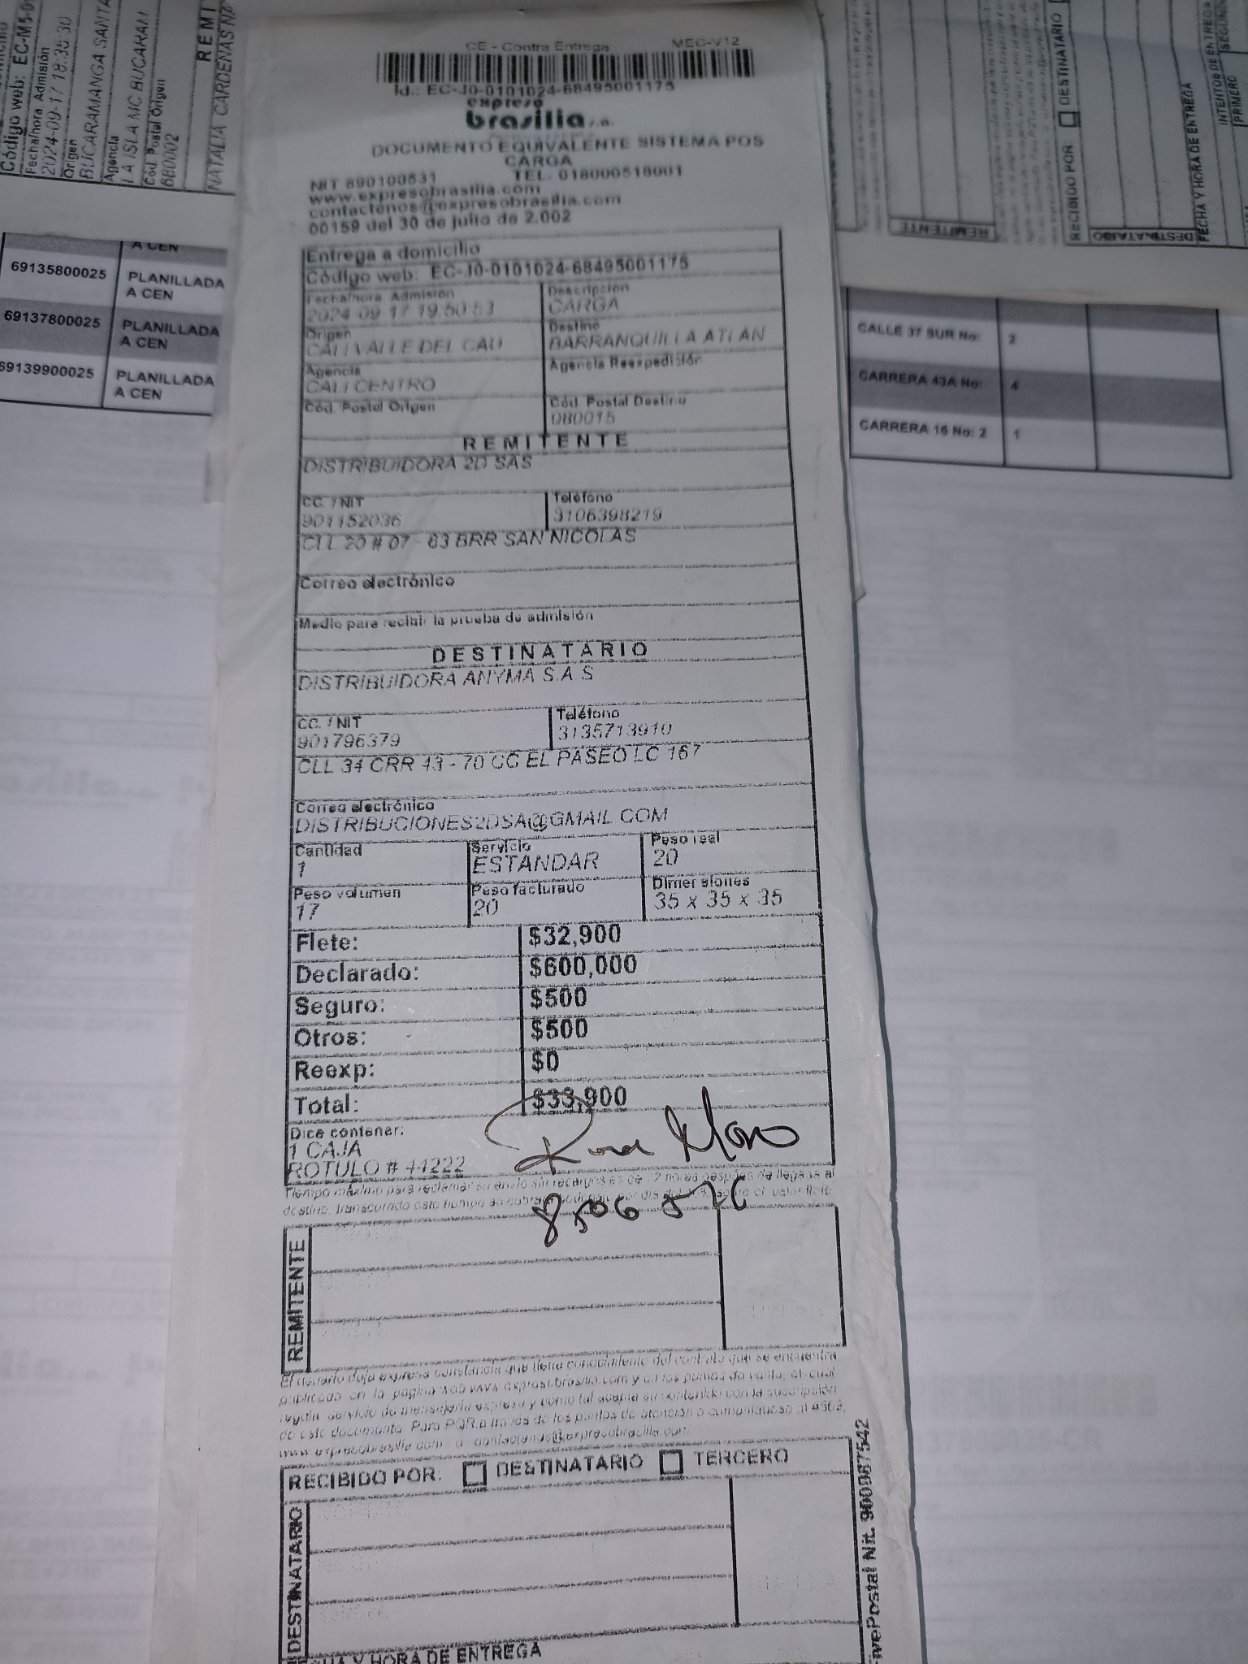 CE - Contra Entrega MEC-V12
Id.: EC-J0-0101024-68495001175
expreso
brasilia s.a.
DOCUMENTO EQUIVALENTE SISTEMA POS
CARGA
NIT 890100531 TEL. 018000518001
www.expresobrasilia.com
contactenos@expresobrasilia.com
00159 del 30 de julio de 2.002
Entrega a domicilio
Código web: EC-J0-0101024-68495001175
Fecha/hora Admisión Descripción
2024-09-17 19:50:53 CARGA
Origen Destino
CALI VALLE DEL CAU BARRANQUILLA ATLAN
Agencia Agencia Reexpedición
CALI CENTRO
Cód. Postal Origen Cód. Postal Destino
080015
REMITENTE
DISTRIBUIDORA 2D SAS
CC. / NIT Teléfono
901152036 3106398219
CLL 20 # 07 - 63 BRR SAN NICOLAS
Correo electrónico
Medio para recibir la prueba de admisión
DESTINATARIO
DISTRIBUIDORA ANYMA S.A.S
CC. / NIT Teléfono
901796379 3135713910
CLL 34 CRR 43 - 70 CC EL PASEO LC 167
Correo electrónico
DISTRIBUCIONES2DSA@GMAIL.COM
Cantidad Servicio Peso real
1 ESTANDAR 20
Peso volumen Peso facturado Dimensiones
17 20 35 x 35 x 35
Flete: $32,900
Declarado: $600,000
Seguro: $500
Otros: $500
Reexp: $0
Total: $33,900
Dice contener:
1 CAJA
ROTULO # 44222
REMITENTE
El usuario deja expresa constancia que tiene conocimiento del contrato que se encuentra
publicado en la pagina web www.expresobrasilia.com y en los puntos de venta, el cual
regula servicio de mensajería expresa y como tal acepta su contenido con la suscripción
de este documento. Para PQR a través de los puntos de atención o comuníquese al
www.expresobrasilia.com o contactenos@expresobrasilia.com
RECIBIDO POR: DESTINATARIO TERCERO
DESTINATARIO
Y HORA DE ENTREGA
Postal Nit. 900987542
Código web: EC-M5-0
Fecha/hora Admisión
2024-09-17 18:35:30
Origen
BUCARAMANGA SANTA
Agencia
LA ISLA MC BUCARAM
Cód. Postal Origen
680002
REMI
NATALIA CARDENAS
A CEN
69135800025 PLANILLADA
A CEN
69137800025 PLANILLADA
A CEN
69139900025 PLANILLADA
A CEN
RECIBIDO POR: DESTINATARIO
REMITENTE
DESTINATARIO
FECHA Y HORA DE ENTREGA
INTENTOS DE ENTREGA
PRIMERO
CALLE 37 SUR No: 2
CARRERA 43A No: 4
CARRERA 16 No: 2 1